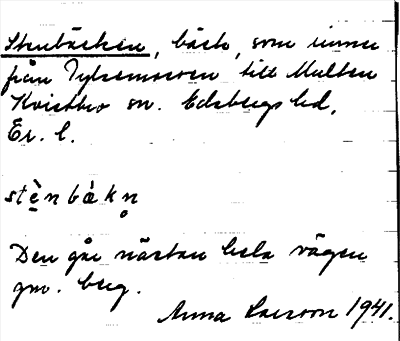 Stenbäcken, bäck, som rinner
från Tylsemossen till Multen
Kvistbro sn. Edsbergs hd,
Ör. l.
stè̱nbàkn̥
Den går nästan hela vägen
gm. berg.
Anna Larsson 1941.